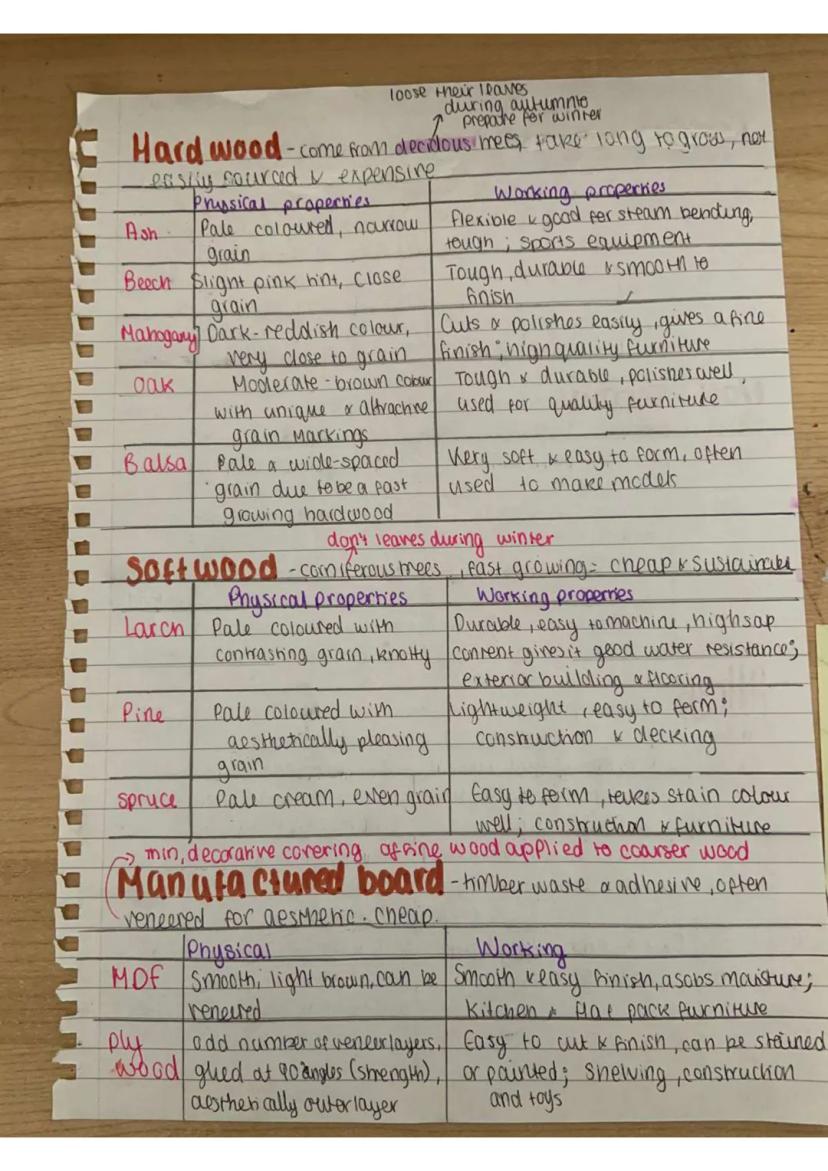 loose their leaves
during autumn to
prepare for winter
Hardwood - come from decidous trees, take long to grow, not
easily sourced & expensive
Physical properties Working properties
Ash Pale coloured, narrow Flexible & good for steam bending,
grain tough ; sports equipment
Beech Slight pink tint, close Tough, durable & smooth to
grain finish
Mahogany Dark-reddish colour, Cuts & polishes easily, gives a fine
very close to grain finish; high quality furniture
Oak Moderate-brown colour Tough & durable, polishes well,
with unique & attractive used for quality furniture
grain markings
Balsa Pale & wide-spaced Very soft & easy to form, often
grain due to be a fast used to make models
growing hardwood
don't leaves during winter
Softwood - corniferous trees, fast growing = cheap & sustainable
Physical properties Working properties
Larch Pale coloured with Durable, easy to machine, high sap
contrasting grain, knotty content gives it good water resistance;
exterior building & flooring
Pine Pale coloured with Lightweight, easy to form;
aesthetically pleasing construction & decking
grain
spruce Pale cream, even grain Easy to form, takes stain colour
well; construction & furniture
→ min, decorative covering of fine wood applied to coarser wood
Manufactured board - timber waste & adhesive, often
veneered for aesthetic. cheap.
Physical Working
MDF Smooth, light brown, can be Smooth & easy finish, asobs moisture;
veneured kitchen & flat pack furniture
ply odd number of veneer layers, Easy to cut & finish, can be stained
wood glued at 90 angles (strength), or painted; shelving, construction
aesthetically outer layer and toys